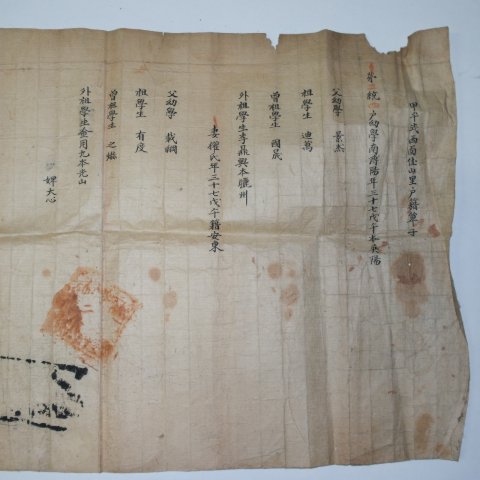 甲午式西面佳山里戶籍單子
第 統 戶幼學南濟陽年三十七戊午本英陽
父幼學 景杰
祖學生 連萬
曾祖學生 國晟
外祖學生李鼎興本驪州
妻權氏年三十七戊午籍安東
父幼學 載綱
祖學生 有度
曾祖學生 之
外祖學生金用九本光山
婢大心